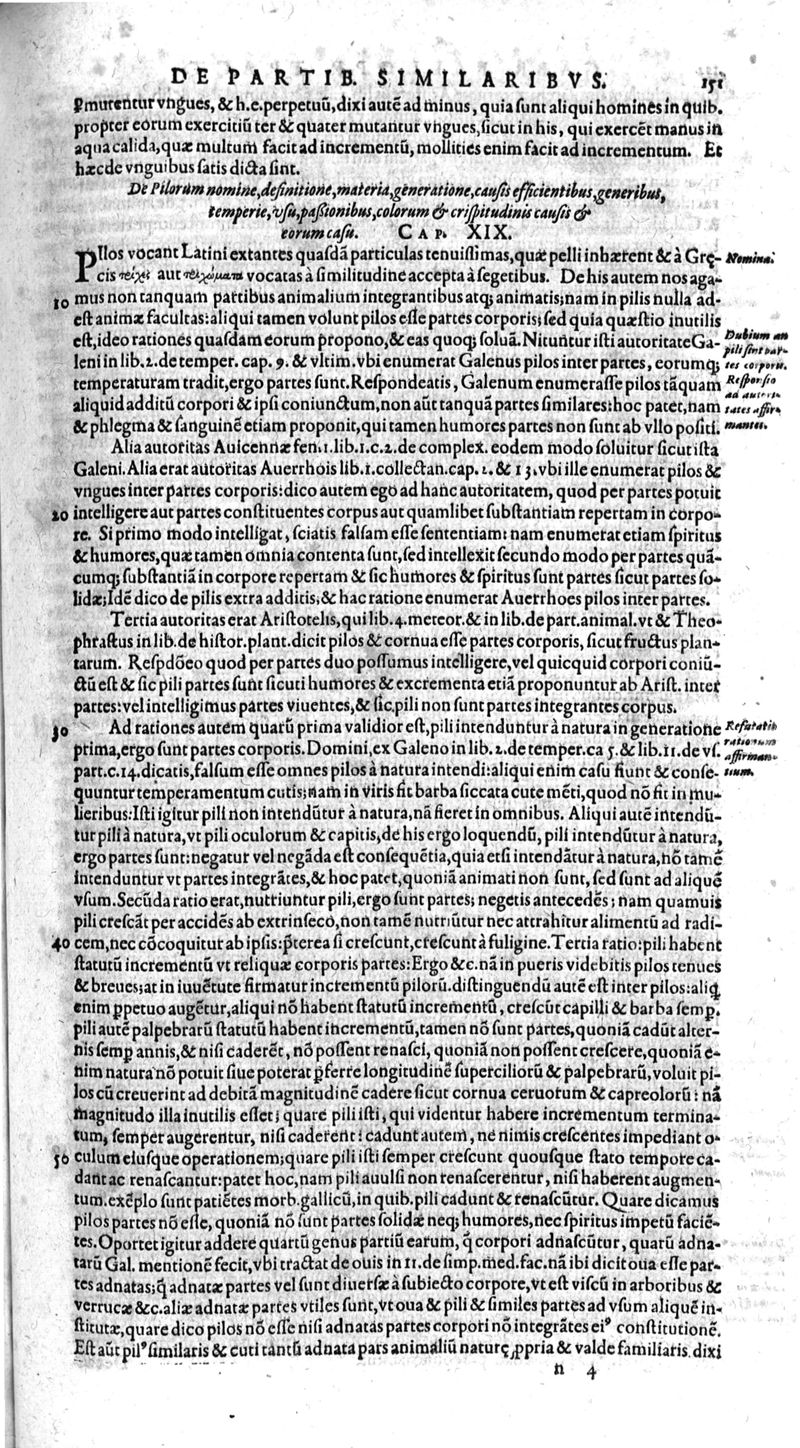 DE PARTIB. SIMILARIBVS. 151
ꝑmutentur vngues, & h.e.perpetuũ, dixi autẽ ad minus, quia sunt aliqui homines in quib.
propter eorum exercitiũ ter & quater mutantur vngues, sicut in his, qui exercẽt manus in
aqua calida, quæ multum facit ad incrementũ, mollities enim facit ad incrementum. Et
hæc de vnguibus satis dicta sint.
De Pilorum nomine, definitione, materia, generatione, causis efficientibus, generibus,
temperie, vsu, passionibus, colorum & crispitudinis causis &
eorum casu. CAP. XIX.
PIlos vocant Latini extantes quasdã particulas tenuissimas, quæ pelli inhærent & à Grę- Nomina.
cis τρίχες aut τριχώματα vocatas à similitudine accepta à segetibus. De his autem nos aga-
10 mus non tanquam partibus animalium integrantibus atq; animatis; nam in pilis nulla ad-
est animæ facultas: aliqui tamen volunt pilos esse partes corporis; sed quia quæstio inutilis
est, ideo rationes quasdam eorum propono, & eas quoq; soluã. Nituntur isti autoritate Ga- Dubium an
leni in lib. 2. de temper. cap. 9. & vltim. vbi enumerat Galenus pilos inter partes, eorumq; pili sint par-
tes corporis.
temperaturam tradit, ergo partes sunt. Respondeatis, Galenum enumerasse pilos tãquam Responsio
aliquid additũ corpori & ipsi coniunctum, non aũt tanquã partes similares: hoc patet, nam ad autori-
tates affir-
& phlegma & sanguinẽ etiam proponit, qui tamen humores partes non sunt ab vllo positi. mantes.
Alia autoritas Auicennæ fen. 1. lib. 1. c. 2. de complex. eodem modo soluitur sicut ista
Galeni. Alia erat autoritas Auerrhois lib. 1. collectan. cap. 1. & 13. vbi ille enumerat pilos &
vngues inter partes corporis: dico autem ego ad hanc autoritatem, quod per partes potuit
20 intelligere aut partes constituentes corpus aut quamlibet substantiam repertam in corpo-
re. Si primo modo intelligat, sciatis falsam esse sententiam: nam enumerat etiam spiritus
& humores, quæ tamen omnia contenta sunt, sed intellexit secundo modo per partes quã-
cumq; substantiã in corpore repertam & sic humores & spiritus sunt partes sicut partes so-
lidæ; Idẽ dico de pilis extra additis, & hac ratione enumerat Auerrhoes pilos inter partes.
Tertia autoritas erat Aristotelis, qui lib. 4. meteor. & in lib. de part. animal. vt & Theo-
phrastus in lib. de histor. plant. dicit pilos & cornua esse partes corporis, sicut fructus plan-
tarum. Respdõeo quod per partes duo possumus intelligere, vel quicquid corpori coniũ-
ctũ est & sic pili partes sunt sicuti humores & excrementa etiã proponuntur ab Arist. inter
partes: vel intelligimus partes viuentes, & sic, pili non sunt partes integrantes corpus.
30 Ad rationes autem quarũ prima validior est, pili intenduntur à natura in generatione Refutatio
prima, ergo sunt partes corporis. Domini, ex Galeno in lib. 2. de temper. ca 5. & lib. 11. de vs. rationum
affirman-
part. c. 14. dicatis, falsum esse omnes pilos à natura intendi: aliqui enim casu fiunt & conse- tium.
quuntur temperamentum cutis; nam in viris fit barba siccata cute mẽti, quod nõ fit in mu-
lieribus: Isti igitur pili non intendũtur à natura, nã fieret in omnibus. Aliqui autẽ intendũ-
tur pili à natura, vt pili oculorum & capitis, de his ergo loquendũ, pili intendũtur à natura,
ergo partes sunt: negatur vel negãda est consequẽtia, quia etsi intendãtur à natura, nõ tamẽ
intenduntur vt partes integrãtes, & hoc patet, quoniã animati non sunt, sed sunt ad aliquẽ
vsum. Secũda ratio erat, nutriuntur pili, ergo sunt partes; negetis antecedẽs; nam quamuis
pili crescãt per accidẽs ab extrinseco, non tamẽ nutriũtur nec attrahitur alimentũ ad radi-
40 cem, nec cõcoquitur ab ipsis: p̃terea si crescunt, crescunt à fuligine. Tertia ratio: pili habent
statutũ incrementũ vt reliquæ corporis partes: Ergo &c. nã in pueris videbitis pilos tenues
& breues; at in iuuẽtute firmatur incrementũ pilorũ. distinguendũ autẽ est inter pilos: aliq̃
enim ꝑpetuo augẽtur, aliqui nõ habent statutũ incrementũ, crescũt capilli & barba semꝑ.
pili autẽ palpebrarũ statutũ habent incrementũ, tamen nõ sunt partes, quoniã cadũt alter-
nis semꝑ annis, & nisi caderẽt, nõ possent renasci, quoniã non possent crescere, quoniã e-
nim natura nõ potuit siue poterat p̃ferre longitudinẽ superciliorũ & palpebrarũ, voluit pi-
los cũ creuerint ad debitã magnitudinẽ cadere sicut cornua ceruorum & capreolorũ: nã
magnitudo illa inutilis esset; quare pili isti, qui videntur habere incrementum termina-
tum, semper augerentur, nisi caderent: cadunt autem, ne nimis crescentes impediant o-
50 culum eiusque operationem; quare pili isti semper crescunt quousque stato tempore ca-
dant ac renascantur: patet hoc, nam pili auulsi non renascerentur, nisi haberent augmen-
tum. exẽplo sunt patiẽtes morb. gallicũ, in quib. pili cadunt & renascũtur. Quare dicamus
pilos partes nõ esse, quoniã nõ sunt partes solidæ neq; humores, nec spiritus impetũ faciẽ-
tes. Oportet igitur addere quartũ genus partiũ earum, q̃ corpori adnascũtur, quarũ adna-
tarũ Gal. mentionẽ fecit, vbi tractat de ouis in 11. de simp. med. fac. nã ibi dicit oua esse par-
tes adnatas; q̃ adnatæ partes vel sunt diuersæ à subiecto corpore, vt est viscũ in arboribus &
verrucæ &c. aliæ adnatæ partes vtiles sunt, vt oua & pili & similes partes ad vsum aliquẽ in-
stitutæ, quare dico pilos nõ esse nisi adnatas partes corpori nõ integrãtes eiꝰ constitutionẽ.
Est aũt pilꝰ similaris & cuti tantũ adnata pars animaliũ naturę ꝓpria & valde familiaris. dixi
n 4